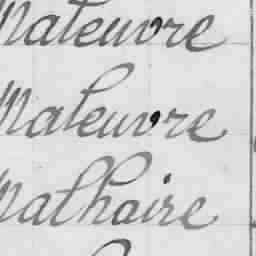 Maleuvre
Maleuvre
Malhaire